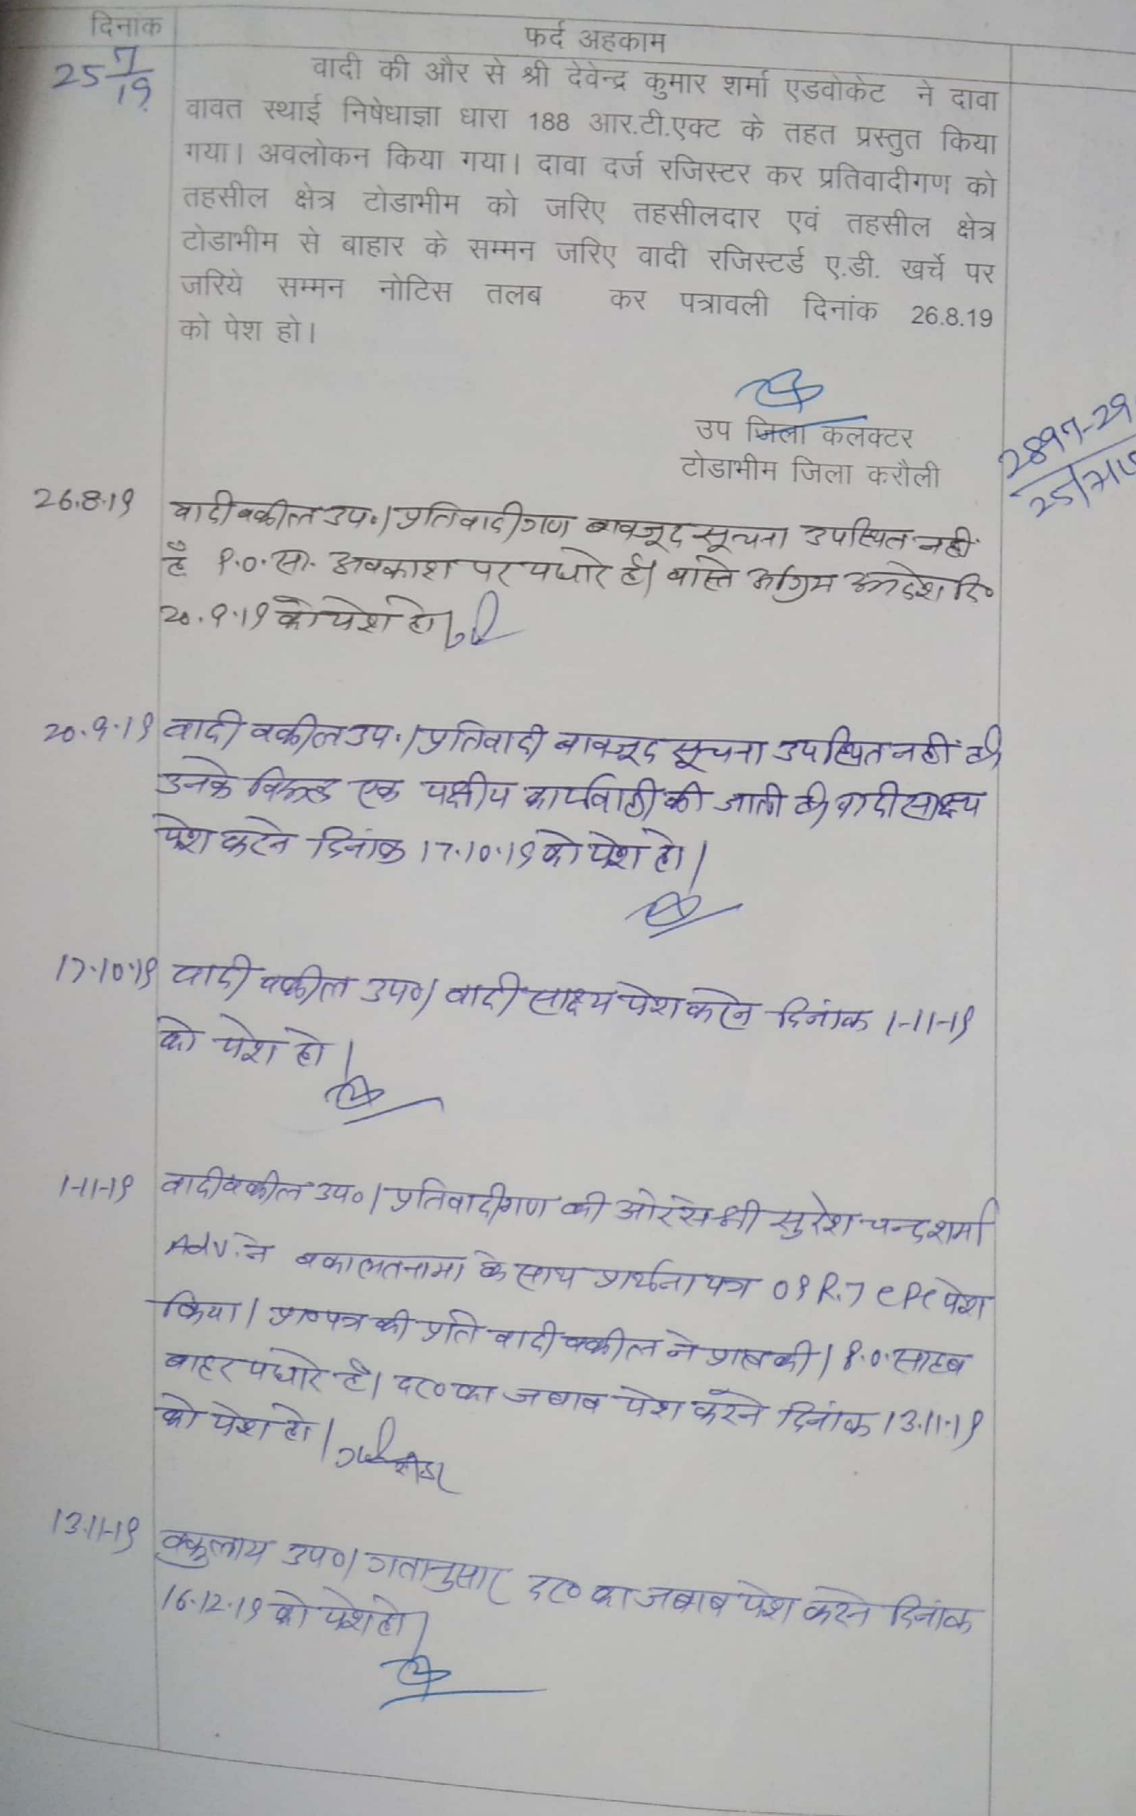 दिनांक
फर्द अहकाम
25 7/19
वादी की और से श्री देवेन्द्र कुमार शर्मा एडवोकेट ने दावा
वावत स्थाई निषेधाज्ञा धारा 188 आर.टी.एक्ट के तहत प्रस्तुत किया
गया। अवलोकन किया गया। दावा दर्ज रजिस्टर कर प्रतिवादीगण को
तहसील क्षेत्र टोडाभीम को जरिए तहसीलदार एवं तहसील क्षेत्र
टोडाभीम से बाहार के सम्मन जरिए वादी रजिस्टर्ड ए.डी. खर्चे पर
जरिये सम्मन नोटिस तलब कर पत्रावली दिनांक 26.8.19
को पेश हो।
उप जिला कलक्टर
टोडाभीम जिला करौली
2897-29
25/7/19
26.8.19 वादी वकील उप०। प्रतिवादीगण बावजूद सूचना उपस्थित नहीं
है P.O. सा. अवकाश पर पधारे है। वास्ते अग्रिम आदेश दि०
20.9.19 को पेश हो।
20.9.19 वादी वकील उप.। प्रतिवादी बावजूद सूचना उपस्थित नहीं है।
उनके विरूद्ध एक पक्षीय कार्यवाही की जाती है। वादी साक्ष्य
पेश करने दिनांक 17.10.19 को पेश हो।
17.10.19 वादी वकील उप०। वादी साक्ष्य पेश करने दिनांक 1-11-19
को पेश हो।
1-11-19 वादी वकील उप०। प्रतिवादीगण की ओर से श्री सुरेश चन्द शर्मा
Adv. ने वकालतनामा के साथ प्रार्थना पत्र O9 R.7 CPC पेश
किया। प्रा०पत्र की प्रति वादी वकील ने प्राप्त की। P.O. साहब
बाहर पधारे है। दर० का जबाव पेश करने दिनांक 13.11.19
को पेश हो।
13.11.19 वकुलाय उप०। गतानुसार दर० का जबाब पेश करने दिनांक
16.12.19 को पेश हो।